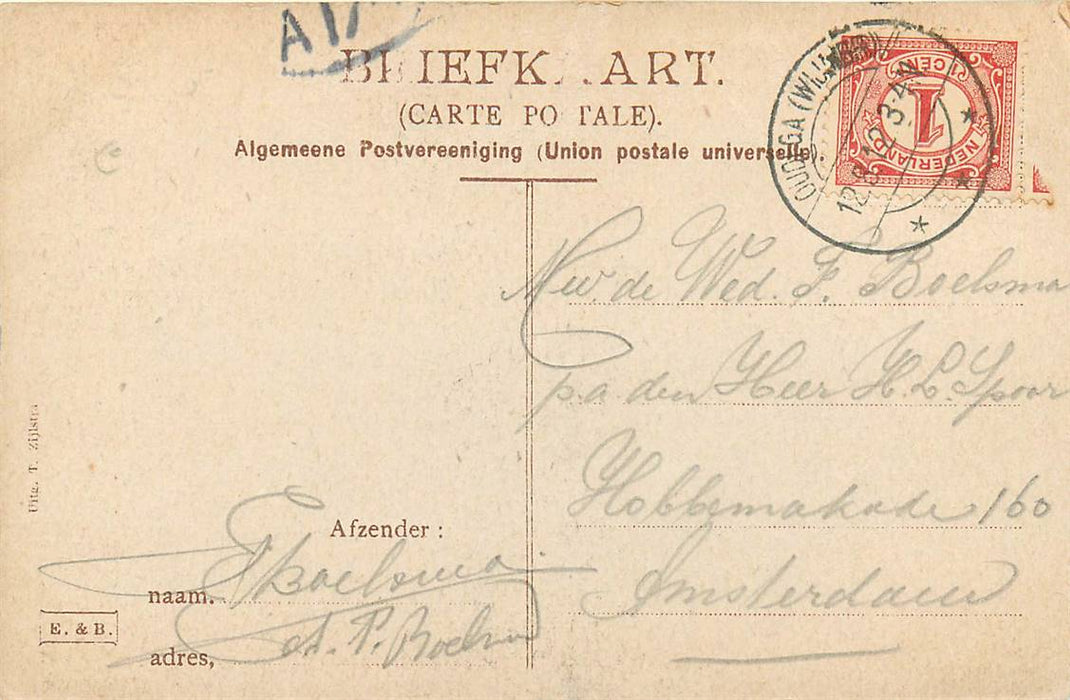 BRIEFKAART.
(CARTE POSTALE).
Algemeene Postvereeniging (Union postale universelle)
OUDEGA (WIJMBR)
12.8.12.3-4N
1 CENT
1
NEDERLAND
Mw. de Wed. F. Boelsma
p.a den Heer H. L. Spoor
Hobbemakade 160
Amsterdam
Uitg. T. Zijlstra
Afzender:
naam. Boelsma
A. P. Boelsma
adres,
E. & B.